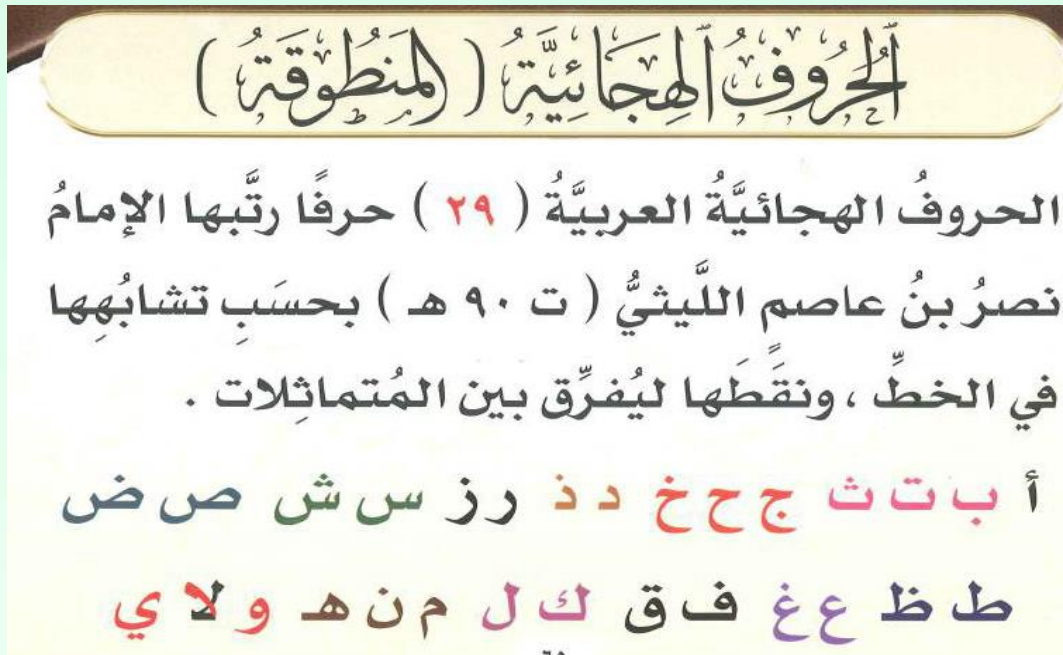 ٱلْحُرُوفُ ٱلْهِجَائِيَّةُ ( ٱلْمَنطُوقَةُ )
الحروفُ الهجائيَّةُ العربيَّةُ ( ٢٩ ) حرفًا رتَّبها الإمامُ
نصرُ بنُ عاصم اللَّيثيُّ ( ت ٩٠ هـ ) بحسَبِ تشابُهِها
في الخطِّ ، ونقَّطَها ليُفرِّق بين المُتماثِلات .
أ ب ت ث ج ح خ د ذ ر ز س ش ص ض
ط ظ ع غ ف ق ك ل م ن هـ و لا ي